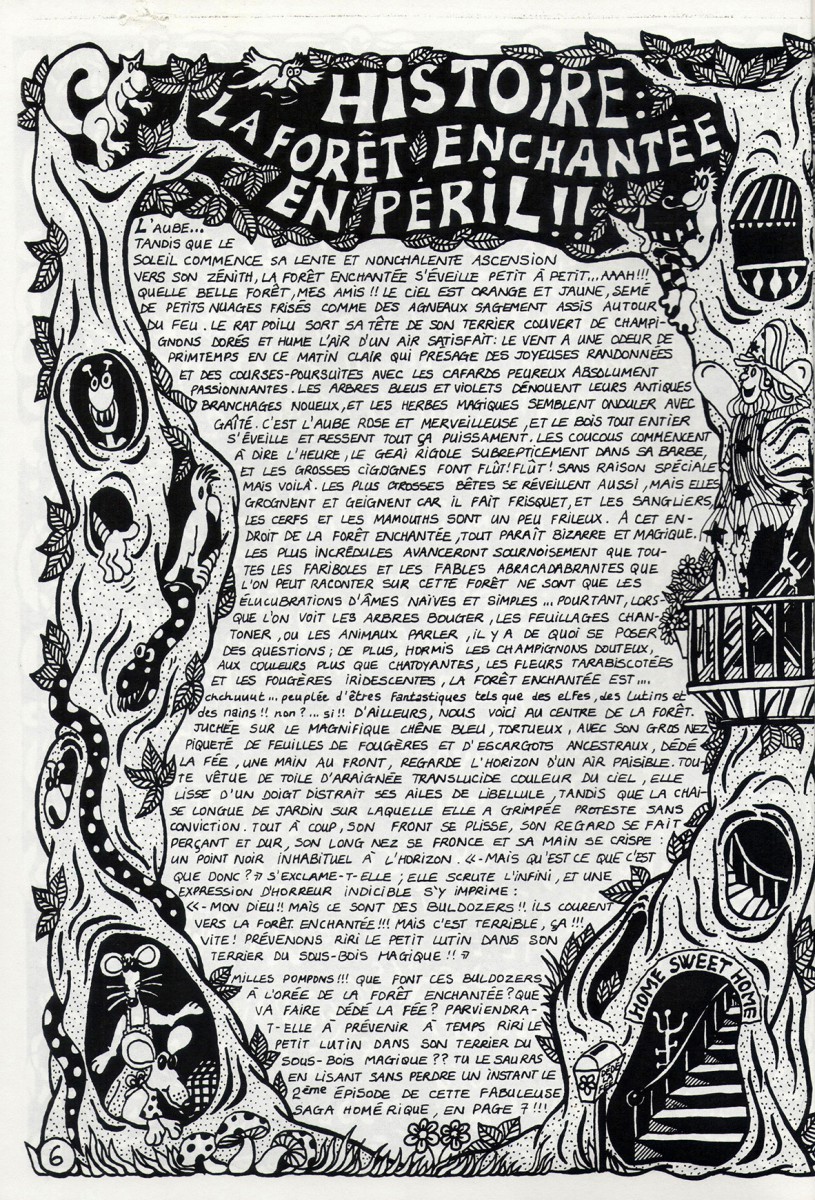 HISTOIRE:
LA FORÊT ENCHANTÉE
EN PÉRIL!!
L'AUBE...
TANDIS QUE LE
SOLEIL COMMENCE SA LENTE ET NONCHALENTE ASCENSION
VERS SON ZÉNITH, LA FORÊT ENCHANTÉE S'ÉVEILLE PETIT À PETIT...AAAH!!!
QUELLE BELLE FORÊT, MES AMIS!! LE CIEL EST ORANGE ET JAUNE, SEMÉ
DE PETITS NUAGES FRISÉS COMME DES AGNEAUX SAGEMENT ASSIS AUTOUR
DU FEU. LE RAT POILU SORT SA TÊTE DE SON TERRIER COUVERT DE CHAMPI-
GNONS DORÉS ET HUME L'AIR D'UN AIR SATISFAIT: LE VENT A UNE ODEUR DE
PRIMTEMPS EN CE MATIN CLAIR QUI PRÉSAGE DES JOYEUSES RANDONNÉES
ET DES COURSES-POURSUITES AVEC LES CAFARDS PEUREUX ABSOLUMENT
PASSIONNANTES. LES ARBRES BLEUS ET VIOLETS DÉNOUENT LEURS ANTIQUES
BRANCHAGES NOUEUX, ET LES HERBES MAGIQUES SEMBLENT ONDULER AVEC
GAÎTÉ. C'EST L'AUBE ROSE ET MERVEILLEUSE, ET LE BOIS TOUT ENTIER
S'ÉVEILLE ET RESSENT TOUT ÇA PUISSAMENT. LES COUCOUS COMMENCENT
À DIRE L'HEURE, LE GEAI RIGOLE SUBREPTICEMENT DANS SA BARBE,
ET LES GROSSES CIGOGNES FONT FLÛT! FLÛT! SANS RAISON SPÉCIALE
MAIS VOILÀ. LES PLUS GROSSES BÊTES SE RÉVEILLENT AUSSI, MAIS ELLES
GROGNENT ET GEIGNENT CAR IL FAIT FRISQUET, ET LES SANGLIERS,
LES CERFS ET LES MAMOUTHS SONT UN PEU FRILEUX. À CET EN-
DROIT DE LA FORÊT ENCHANTÉE, TOUT PARAÎT BIZARRE ET MAGIQUE.
LES PLUS INCRÉDULES AVANCERONT SOURNOISEMENT QUE TOU-
TES LES FARIBOLES ET LES FABLES ABRACADABRANTES QUE
L'ON PEUT RACONTER SUR CETTE FORÊT NE SONT QUE LES
ÉLUCUBRATIONS D'ÂMES NAÏVES ET SIMPLES... POURTANT, LORS-
QUE L'ON VOIT LES ARBRES BOUGER, LES FEUILLAGES CHAN-
TONER, OU LES ANIMAUX PARLER, IL Y A DE QUOI SE POSER
DES QUESTIONS; DE PLUS, HORMIS LES CHAMPIGNONS DOUTEUX,
AUX COULEURS PLUS QUE CHATOYANTES, LES FLEURS TARABISCOTÉES
ET LES FOUGÈRES IRIDESCENTES, LA FORÊT ENCHANTÉE EST...
chchuuut... peuplée d'êtres fantastiques tels que des elfes, des lutins et
des nains!! non?... si!! D'AILLEURS, NOUS VOICI AU CENTRE DE LA FORÊT.
JUCHÉE SUR LE MAGNIFIQUE CHÊNE BLEU, TORTUEUX, AVEC SON GROS NEZ
PIQUETÉ DE FEUILLES DE FOUGÈRES ET D'ESCARGOTS ANCESTRAUX, DÉDÉ
LA FÉE, UNE MAIN AU FRONT, REGARDE L'HORIZON D'UN AIR PAISIBLE. TOU-
TE VÊTUE DE TOILE D'ARAIGNÉE TRANSLUCIDE COULEUR DU CIEL, ELLE
LISSE D'UN DOIGT DISTRAIT SES AILES DE LIBELLULE, TANDIS QUE LA CHAI-
SE LONGUE DE JARDIN SUR LAQUELLE ELLE A GRIMPÉE PROTESTE SANS
CONVICTION. TOUT À COUP, SON FRONT SE PLISSE, SON REGARD SE FAIT
PERÇANT ET DUR, SON LONG NEZ SE FRONCE ET SA MAIN SE CRISPE:
UN POINT NOIR INHABITUEL À L'HORIZON. «-MAIS QU'EST CE QUE C'EST
QUE DONC?» S'EXCLAME-T-ELLE; ELLE SCRUTE L'INFINI, ET UNE
EXPRESSION D'HORREUR INDICIBLE S'Y IMPRIME:
«-MON DIEU!! MAIS CE SONT DES BULDOZERS!! ILS COURENT
VERS LA FORÊT ENCHANTÉE!!! MAIS C'EST TERRIBLE, ÇA!!!
VITE! PRÉVENONS RIRI LE PETIT LUTIN DANS SON
TERRIER DU SOUS-BOIS MAGIQUE!!»
MILLES POMPONS!!! QUE FONT CES BULDOZERS
À L'ORÉE DE LA FORÊT ENCHANTÉE? QUE
VA FAIRE DÉDÉ LA FÉE? PARVIENDRA-
T-ELLE À PRÉVENIR À TEMPS RIRI LE
PETIT LUTIN DANS SON TERRIER DU
SOUS-BOIS MAGIQUE?? TU LE SAURAS
EN LISANT SANS PERDRE UN INSTANT LE
2ème ÉPISODE DE CETTE FABULEUSE
SAGA HOMÉRIQUE, EN PAGE 7!!!
HOME SWEET HOME
DÉDÉ
6